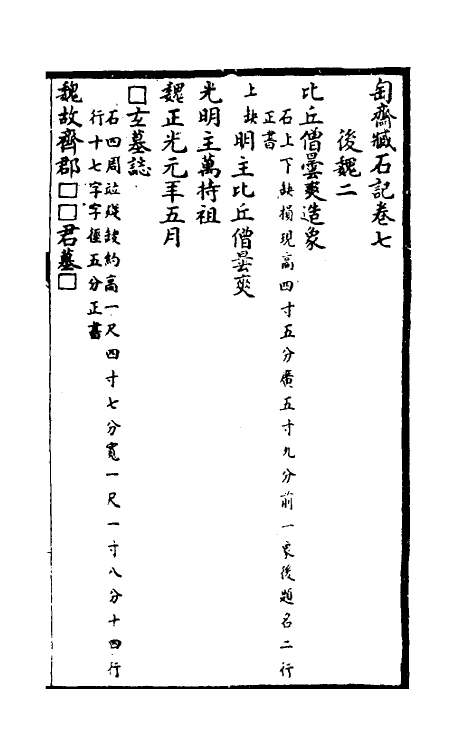 匋齋臧石記卷七
後魏二
比丘僧曇奭造象
石上下缺損現高四寸五分廣五寸九分前一象後題名二行
正書
上缺明主比丘僧曇奭
光明主萬持祖
魏正光元年五月
□玄墓誌
石四周竝殘缺約高一尺四寸七分寬一尺一寸八分十四行
行十七字字徑五分正書
魏故齊郡□□君墓□